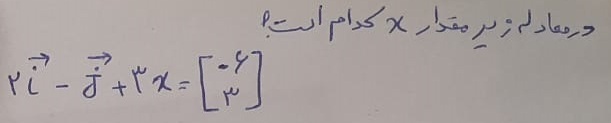 در معادله زیر مقدار x کدام است؟
۲i⃗ - j⃗ + ۳x = [-۶ ۳]